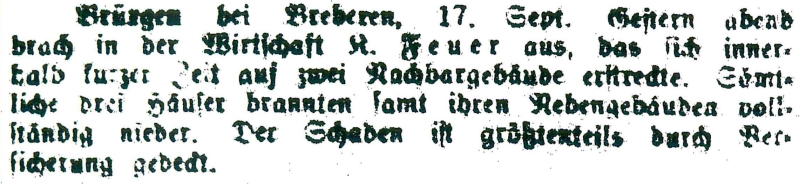 Brüxgen bei Breberen, 17. Sept. Gestern abend
brach in der Wirtschaft K. Feuer aus, das sich inner-
halb kurzer Zeit auf zwei Nachbargebäude erstreckte. Sämt-
liche drei Häuser brannten samt ihren Nebengebäuden voll-
ständig nieder. Der Schaden ist größtenteils durch Ver-
sicherung gedeckt.